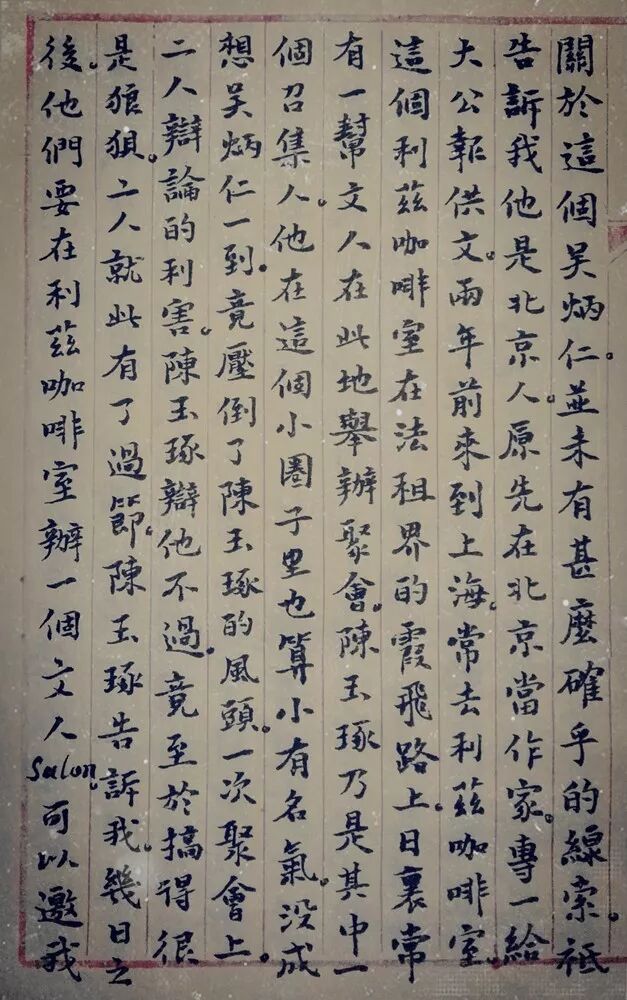 關於這個吴炳仁。並未有甚麼確乎的線索。祗
告訴我他是北京人。原先在北京當作家。專一給
大公報供文。兩年前來到上海。常去利茲咖啡室。
這個利茲咖啡室在法租界的霞飛路上。日裏常
有一幫文人在此地舉辦聚會。陳玉琢乃是其中一
個召集人。他在這個小圈子里也算小有名氣。没成
想吴炳仁一到。竟壓倒了陳玉琢的風頭。一次聚會上。
二人辯論的利害。陳玉琢辯他不過。竟至於搞得很
是狼狽。二人就此有了過節。陳玉琢告訴我。幾日之
後。他們要在利茲咖啡室辦一個文人Salon。可以邀我